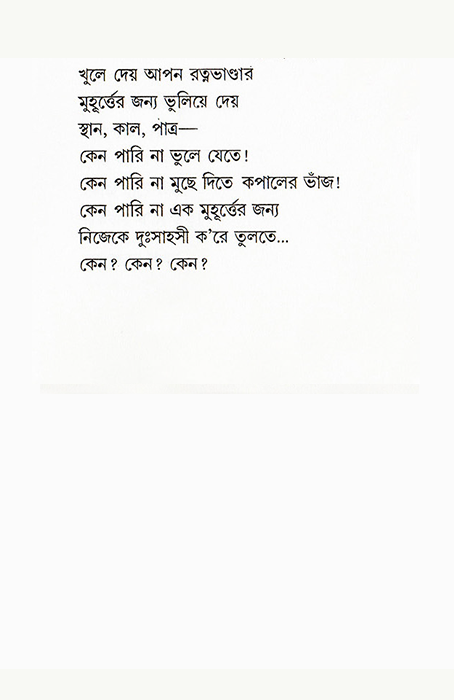 খুলে দেয় আপন রত্নভাণ্ডার
মুহূর্ত্তের জন্য ভুলিয়ে দেয়
স্থান, কাল, পাত্র—
কেন পারি না ভুলে যেতে!
কেন পারি না মুছে দিতে কপালের ভাঁজ!
কেন পারি না এক মুহূর্ত্তের জন্য
নিজেকে দুঃসাহসী ক'রে তুলতে...
কেন? কেন? কেন?